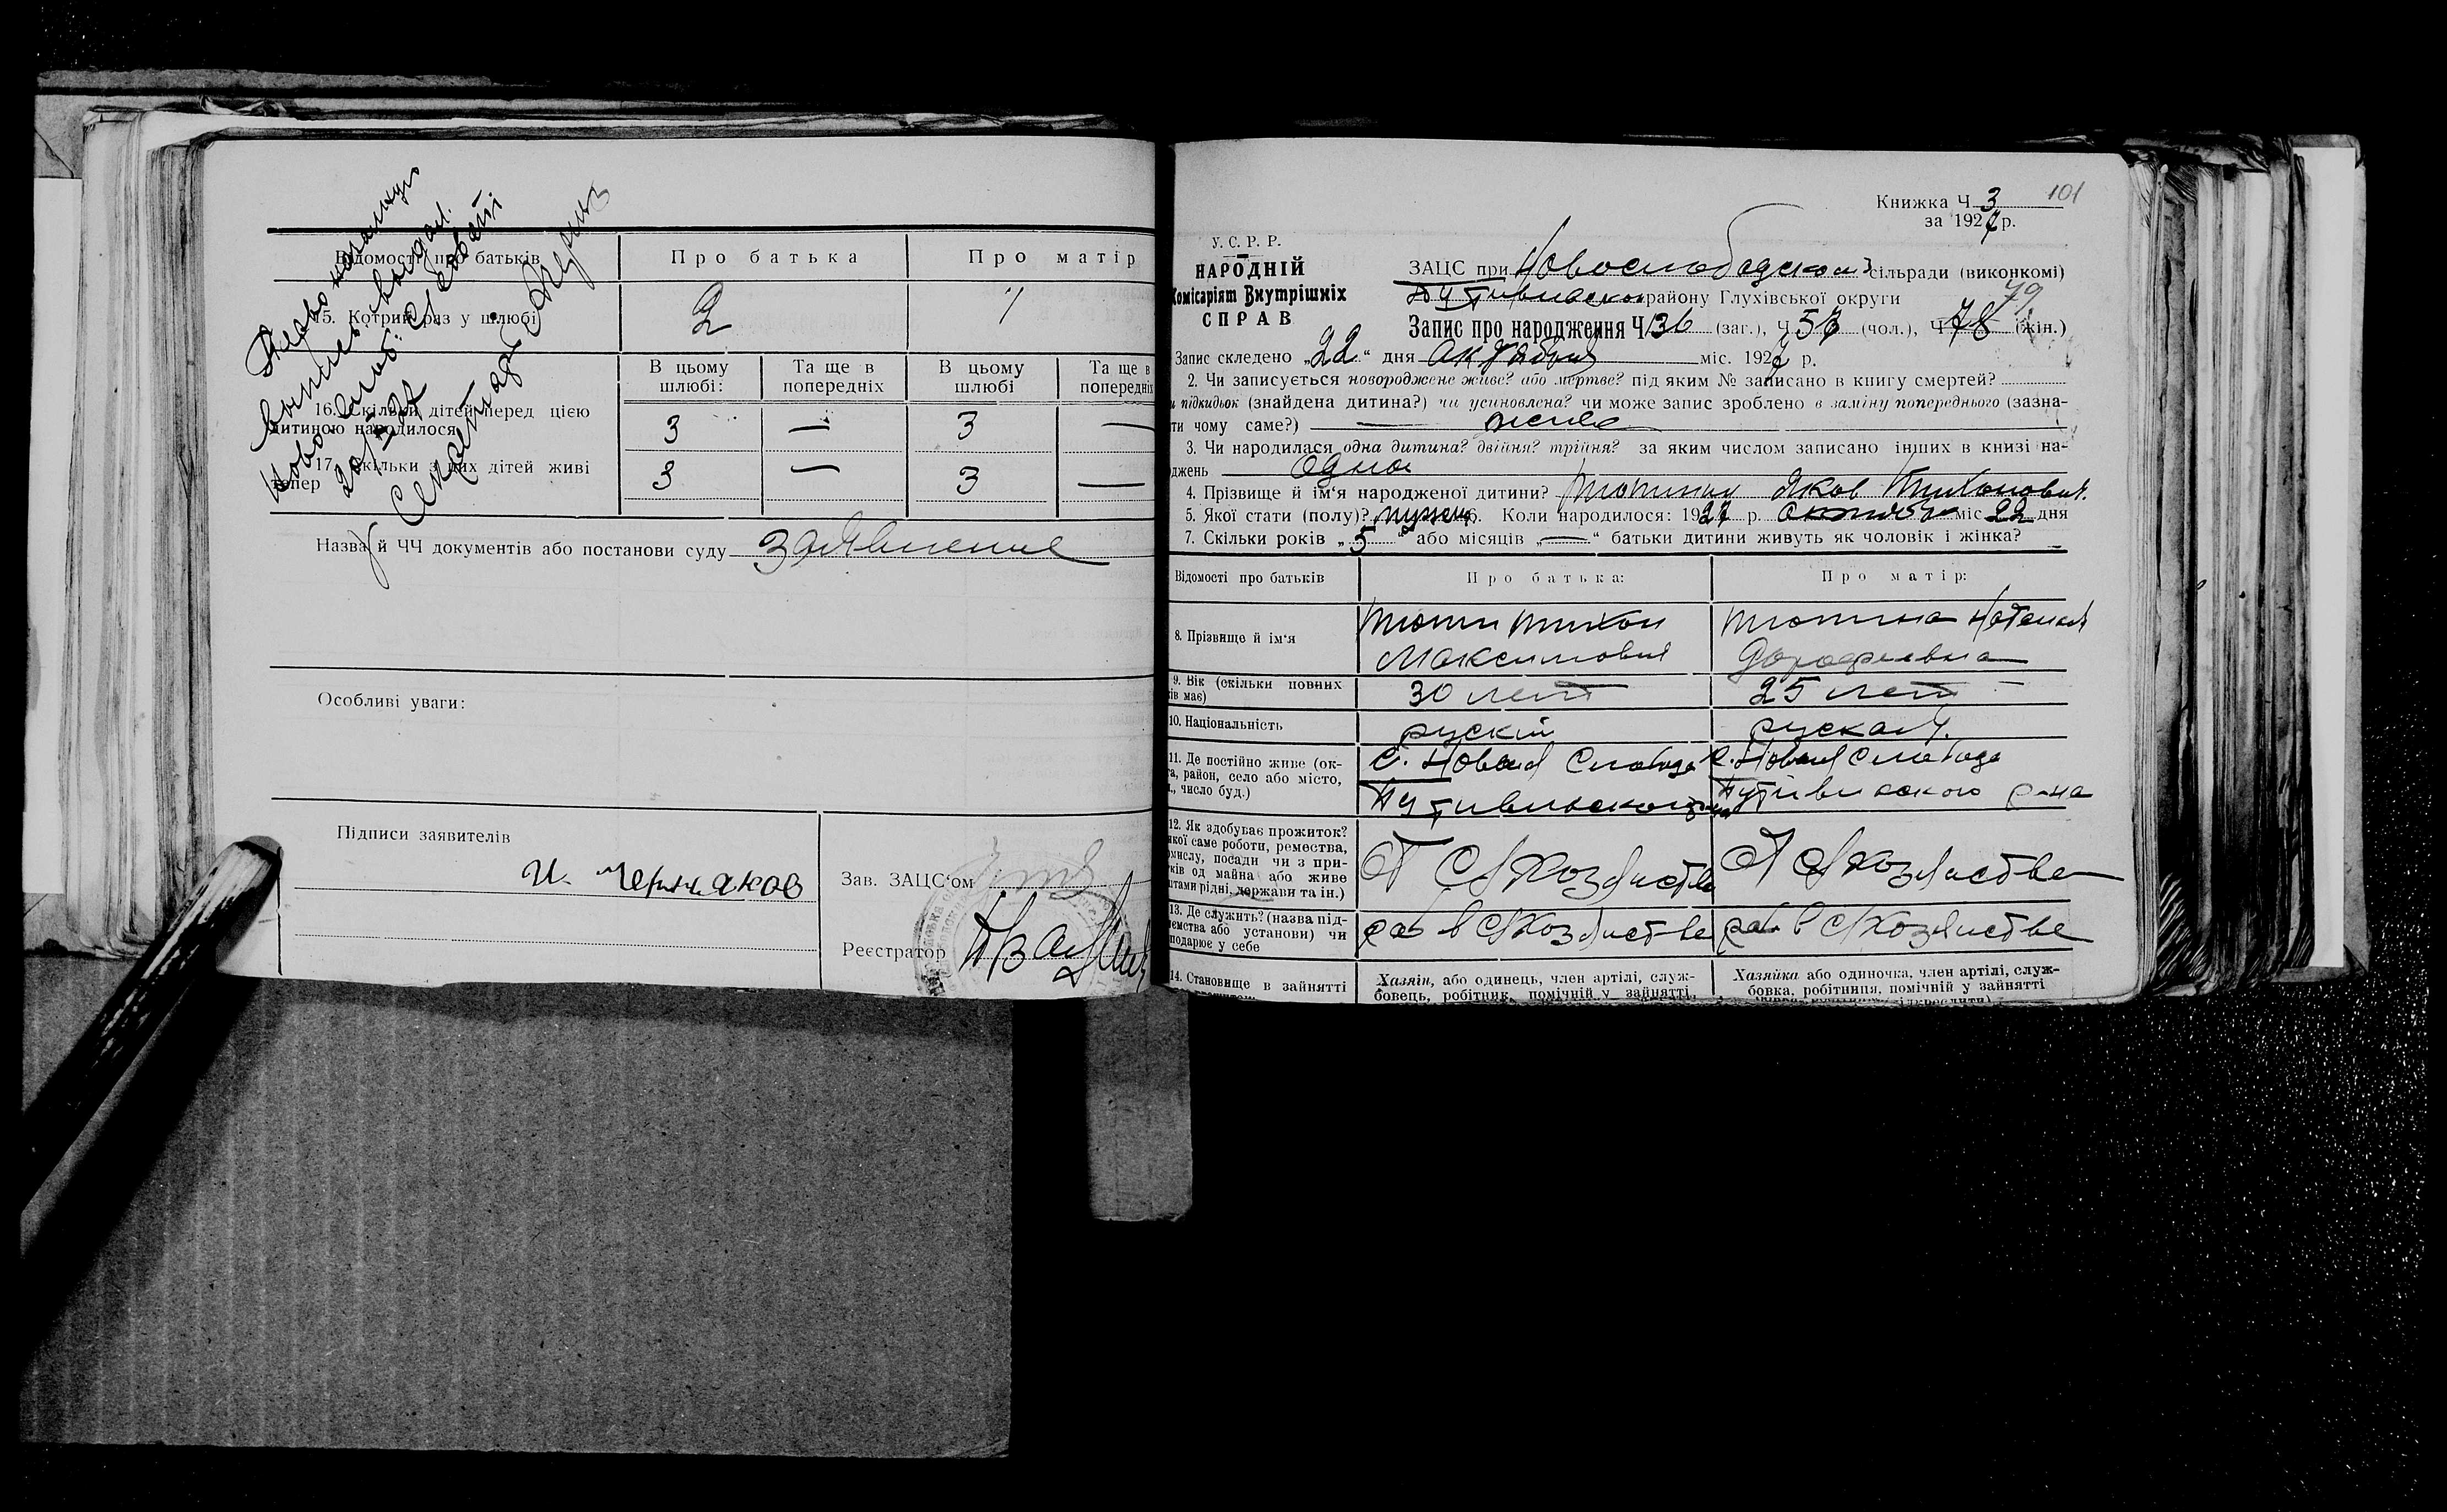 Відомості про батьків
Про батька
Про матір
15. Котрий раз у шлюбі
2
1
В цьому шлюбі:
Та ще в попередніх
В цьому шлюбі
Та ще в попередніх
16. Скільки дітей перед цією дитиною народилося
3 — 3 —
17. Скільки з цих дітей живі тепер
3 — 3 —
Назва й ЧЧ документів або постанови суду Заявление
Особливі уваги:
Підписи заявителів
Зав. ЗАЦС'ом
Реєстратор
Секретарь
101
Книжка Ч. 3
за 1927 р.
У. С. Р. Р.
НАРОДНІЙ
Комісаріят Внутрішніх
СПРАВ
ЗАЦС при Новослободском сільради (виконкомі)
Путивльском району Глухівської округи
79
Запис про народження Ч 136 (заг.), Ч 57 (чол.), Ч 78 (жін.)
Запис складено „22“ дня Октября міс. 1927 р.
2. Чи записується новороджене живе? або мертве? під яким № записано в книгу смертей?
и підкидьок (знайдена дитина?) чи усиновлена? чи може запис зроблено в заміну попереднього (зазна-
ти чому саме?) — живе
3. Чи народилася одна дитина? двійня? трійня? за яким числом записано інших в книзі на-
джень Одна
4. Прізвище й ім'я народженої дитини? Тютин Яков Тихонович.
5. Якої стати (полу)? мужск 6. Коли народилося: 1927 р. октября міс 22 дня
7. Скільки років „5“ або місяців „—“ батьки дитини живуть як чоловік і жінка?
Відомості про батьків
Про батька:
Про матір:
8. Прізвище й ім'я
Тютин Тихон
Максимович
Тютина Наталья
Дорофеевна
9. Вік (скільки повних
ків має)
30 лет
25 лет
10. Національність
рускій
руская.
11. Де постійно живе (ок-
га, район, село або місто,
., число буд.)
С. Новая Слобода
Путивльского
С. Новая Слобода
Путивльского р-на
12. Як здобуває прожиток?
якої саме роботи, ремества,
омислу, посади чи з при-
ків од майна або живе
штами рідні, держави та ін.)
От С/Хозяйства
От С/Хозяйства
13. Де служить? (назва під-
ємства або установи) чи
подарює у себе
раб в С/Хозяйстве
раб в С/Хозяйстве
14. Становище в зайнятті
Хазяін, або одинець, член артілі, служ-
бовець, робітник, помічній у зайнятті,
Хазяйка або одиночка, член артілі, служ-
бовка, робітниця, помічній у зайнятті